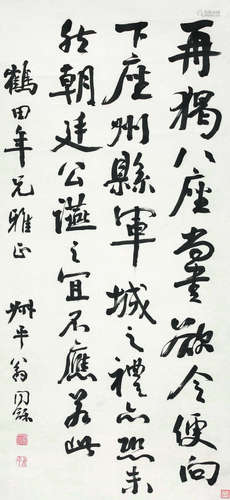 再猲八座尚書欲令便向
下座州縣軍城之禮亦恐未
然朝廷公讌之宜不應若此
鶴田年兄雅正 叔平翁同龢